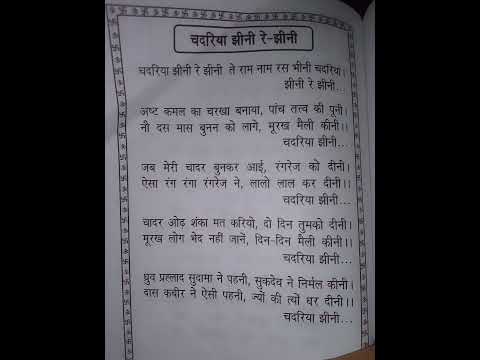 चदरिया झीनी रे-झीनी
चदरिया झीनी रे झीनी ते राम नाम रस भीनी चदरिया।
झीनी रे झीनी...
अष्ट कमल का चरखा बनाया, पांच तत्त्व की पूनी।
नौ दस मास बुनन को लागे, मूरख मैली कीनी।।
चदरिया झीनी...
जब मेरी चादर बुनकर आई, रंगरेज को दीनी।
ऐसा रंग रंगा रंगरेज ने, लालो लाल कर दीनी।।
चदरिया झीनी...
चादर ओड़ शंका मत करियो, दो दिन तुमको दीनी।
मूरख लोग भेद नहीं जानें, दिन-दिन मैली कीनी।।
चदरिया झीनी...
ध्रुव प्रह्लाद सुदामा ने पहनी, सुकदेव ने निर्मल कीनी।
दास कबीर ने ऐसी पहनी, ज्यों की त्यों धर दीनी।।
चदरिया झीनी...